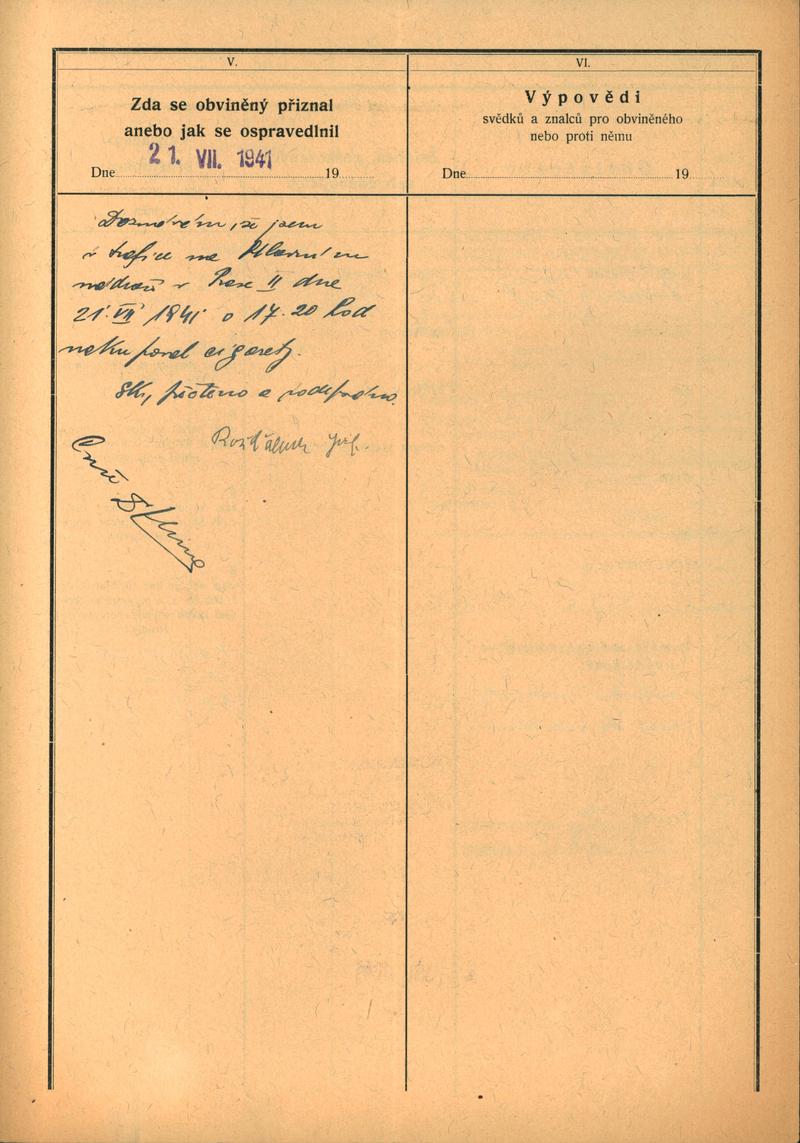 V.
Zda se obviněný přiznal
anebo jak se ospravedlnil
21. VII. 1941
Dne 19
že jsem
v trafice na Hlavním
nádraží v Praze II dne
21. VII 1941 o 17.20 hod
cigarety.
přečteno a podepsáno.
VI.
Výpovědi
svědků a znalců pro obviněného
nebo proti němu
Dne 19